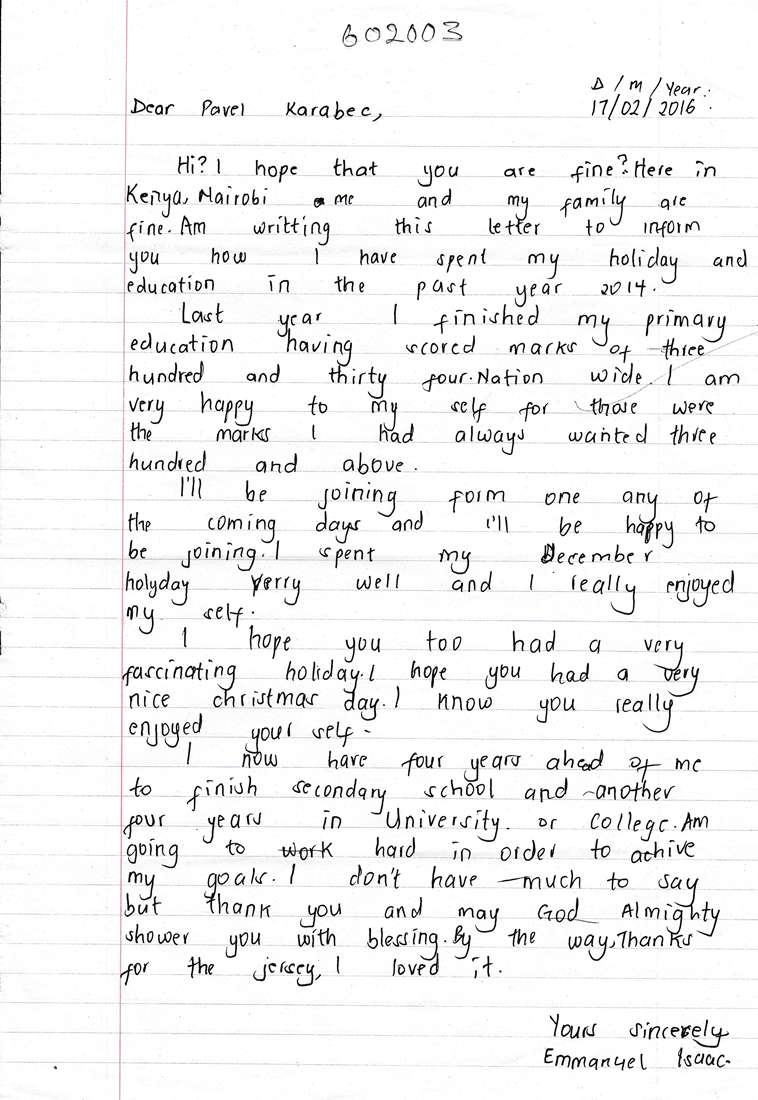 602003
D/M/Year:
Dear Pavel Karabec, 17/02/2016.
Hi? I hope that you are fine? Here in
Kenya, Nairobi me and my family are
fine. Am writting this letter to inform
you how I have spent my holiday and
education in the past year 2014.
Last year I finished my primary
education having scored marks of three
hundred and thirty four. Nation wide. I am
very happy to my self for those were
the marks I had always wanted three
hundred and above.
I'll be joining form one any of
the coming days and I'll be happy to
be joining. I spent my December
holyday verry well and I really enjoyed
my self.
I hope you too had a very
fascinating holiday. I hope you had a very
nice christmas day. I know you really
enjoyed your self.
I now have four years ahead of me
to finish secondary school and another
four years in University. or College. Am
going to work hard in order to achive
my goals. I don't have much to say
but thank you and may God Almighty
shower you with blessing. By the way, Thanks
for the jersey, I loved it.
Yours sincerely
Emmanuel Isaac.